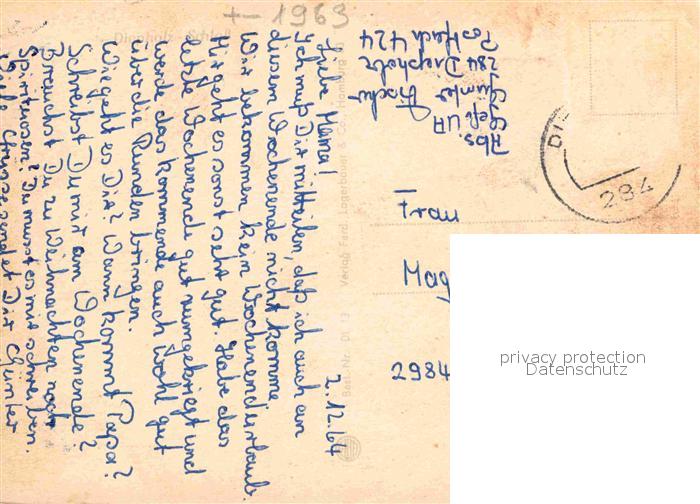 +- 1963
2.12.64
Liebe Mama!
Ich muß Dir mitteilen, daß ich auch an
diesem Wochenende nicht komme
Wir bekommen kein Wochenendurlaub.
Mir geht es sonst sehr gut. Habe das
letzte Wochenende gut rumgekriegt und
werde das kommende auch wohl gut
über die Runden bringen.
Wie geht es Dir? Wann kommt Papa?
Schreibst Du mir am Wochenende?
Brauchst Du zu Weihnachten noch
Spirituosen? Du musst es mir schreiben.
Viele Grüsse sendet Dir Günter
Abs.
Gefr. UA
Günter Fischer
284 Diepholz
Postfach 424
DI
284
Frau
Mag
2984
Best.-Nr. DI 13 Verlag Ferd. Lagerbauer & Co., Hamburg
privacy protection
Datenschutz